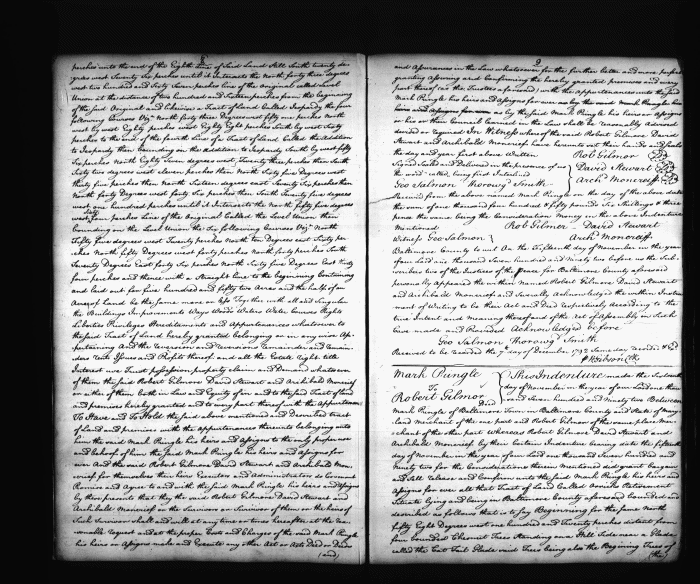 8
perches unto the end of the Eighth line of said Land Still South twenty de-
grees west Twenty Six perches until it Intersects the North forty three degrees
west two hundred and forty Seven perches line of the original called Level
Union at the distance of two hundred and fifteen perches from the beginning
of the said Original and Likewise a Tract of Land Called Jeopardy the four
following Courses Viz. North forty three Degrees west fifty one perches North
west by west Eighty perches west Eighty Eight perches South by west Sixty
perches to the end of the fourth Line of a Tract of Land Called the Addition
to Jeopardy then bounding on the Addition to Jeopardy South by west fifty
Six perches North Eighty Seven degrees west, Twenty three perches then South
Sixty two degrees west eleven perches then North Sixty five Degrees west
thirty five perches then North Sixteen degrees east Twenty Six perches then
North forty Degrees west Sixty Six perches then South Twenty five degrees
west one hundred perches until it Intersects the North fifty five degrees
west, four perches Line of the Original Called the Level Union then
bounding on the Level Union the Six following Courses Viz. North
Fifty five degrees west Twenty perches North Ten Degrees east Sixty per-
ches North fifty Degrees west Twenty perches North forty perches North
Seventy Degrees East forty Six perches North forty Five Degrees East thirty
four perches and thence with a Straight line to the beginning Containing
and laid out for five hundred and fifty two Acres and the half of an
Acre of Land be the same more or less Together with all and Singular
the Buildings Improvements Ways Woods Waters Water Courses Rights
Liberties Privileges Hereditaments and Appurtenances whatsoever to
the said Tract of Land hereby granted belonging or in any wise Ap-
pertaining And the Reversion and Reversions Remainder and Remain-
ders Rents Issues and Profits thereof and all the Estate right title
Interest use Trust possession property Claim and Demand whatsoever
of them the said Robert Gilmor David Stewart and Archibald Moncrief
or either of them both in Law and Equity of in and to the said Tract of land
and premises hereby granted and to every part thereof with the Appurtenances
To Have and To Hold the said above mentioned and Described tract
of Land and premises with the appurtenances thereunto belonging unto
him the said Mark Pringle his heirs and Assigns to the only proper use
and behoof of him the said Mark Pringle his heirs and Assigns for
ever And the said Robert Gilmor David Stewart and Archibald Mon-
crief for themselves their heirs Executors and Administrators do Covenant
Promise and Agree to and with the said Mark Pringle his heirs and Assigns
by these presents that they the said Robert Gilmor David Stewart and
Archibald Moncrief or the Survivors or Survivor of them or the heirs of
Such Survivor shall and will at any time or times hereafter at the rea-
sonable request and at the proper Costs and Charges of the said Mark Pringle
his heirs or Assigns make and Execute any other Act or Acts Deed or Deeds
(and)
9
and Assurances in the Law whatsoever for the further better and more perfect
granting Assuring and Confirming the hereby granted premises and every
part thereof (as the Trustees aforesaid) with the appurtenances unto the said
Mark Pringle his heirs and Assigns for ever as by the said Mark Pringle his
heirs and Assigns or as by the said Mark Pringle his heirs or Assigns
or his or their Council Learned in the Law shall be reasonably Advised
devised or required In Witness whereof the said Robert Gilmor David
Stewart and Archibald Moncrief have hereunto set their hands and Seals
the day and year first above Written
Rob Gilmor
Signed Sealed and Delivered in the presence of us
David Stewart
the word called, being first Interlined
Archd. Moncrieff
Geo Salmon Thorowg. Smith
Received from the above named Mark Pringle on the day of the above date
the sum of one thousand four hundred & fifty pounds Six Shillings & three
pence the same being the Consideration Money in the above Indenture
Mentioned
Rob Gilmor David Stewart
Witness Geo Salmon
Archd. Moncrieff
Baltimore County to wit On the fifteenth day of November in the year
of our Lord one thousand Seven hundred and Ninety two before us the Sub-
scribers two of the Justices of the peace for Baltimore County aforesaid
personally Appeared the within named Robert Gilmor David Stewart
and Archibald Moncrief and Severally Acknowledged the within Instru-
ment of Writing to be their Act and Deed respectively According to the
true Intent and Meaning thereof and of the Act of Assembly in Such
Case made and Provided Acknowledged before
Geo Salmon Thorowg. Smith
Received to be recorded the 7 day of December 1792 Same day recorded &c
Wm Gibson Clk
Mark Pringle
To
Robert Gilmor
This Indenture made the Sixteenth
day of November in the year of our Lord one thou-
sand Seven hundred and Ninety two Between
Mark Pringle of Baltimore Town in Baltimore County and State of Mary-
land Merchant of the one part and Robert Gilmor of the same place Mer-
chant of the other part Whereas Robert Gilmor David Stewart and
Archibald Moncrief by their Certain Indenture bearing date the fifteenth
day of November in the year of our Lord one thousand Seven hundred and
Ninety two for the Considerations therein Mentioned did grant bargain
and Sell release and Confirm unto the said Mark Pringle his heirs and
Assigns for ever all that Tract of Land Called
Situate lying and being in Baltimore County aforesaid bounded and
described as follows that is to say Beginning for the same North
fifty Eight Degrees west one hundred and Twenty perches distant from
four bounded Chesnut Trees Standing on a Hill Side near a Glade
called the East fall Glade said Trees being also the Begining Trees of
(the)